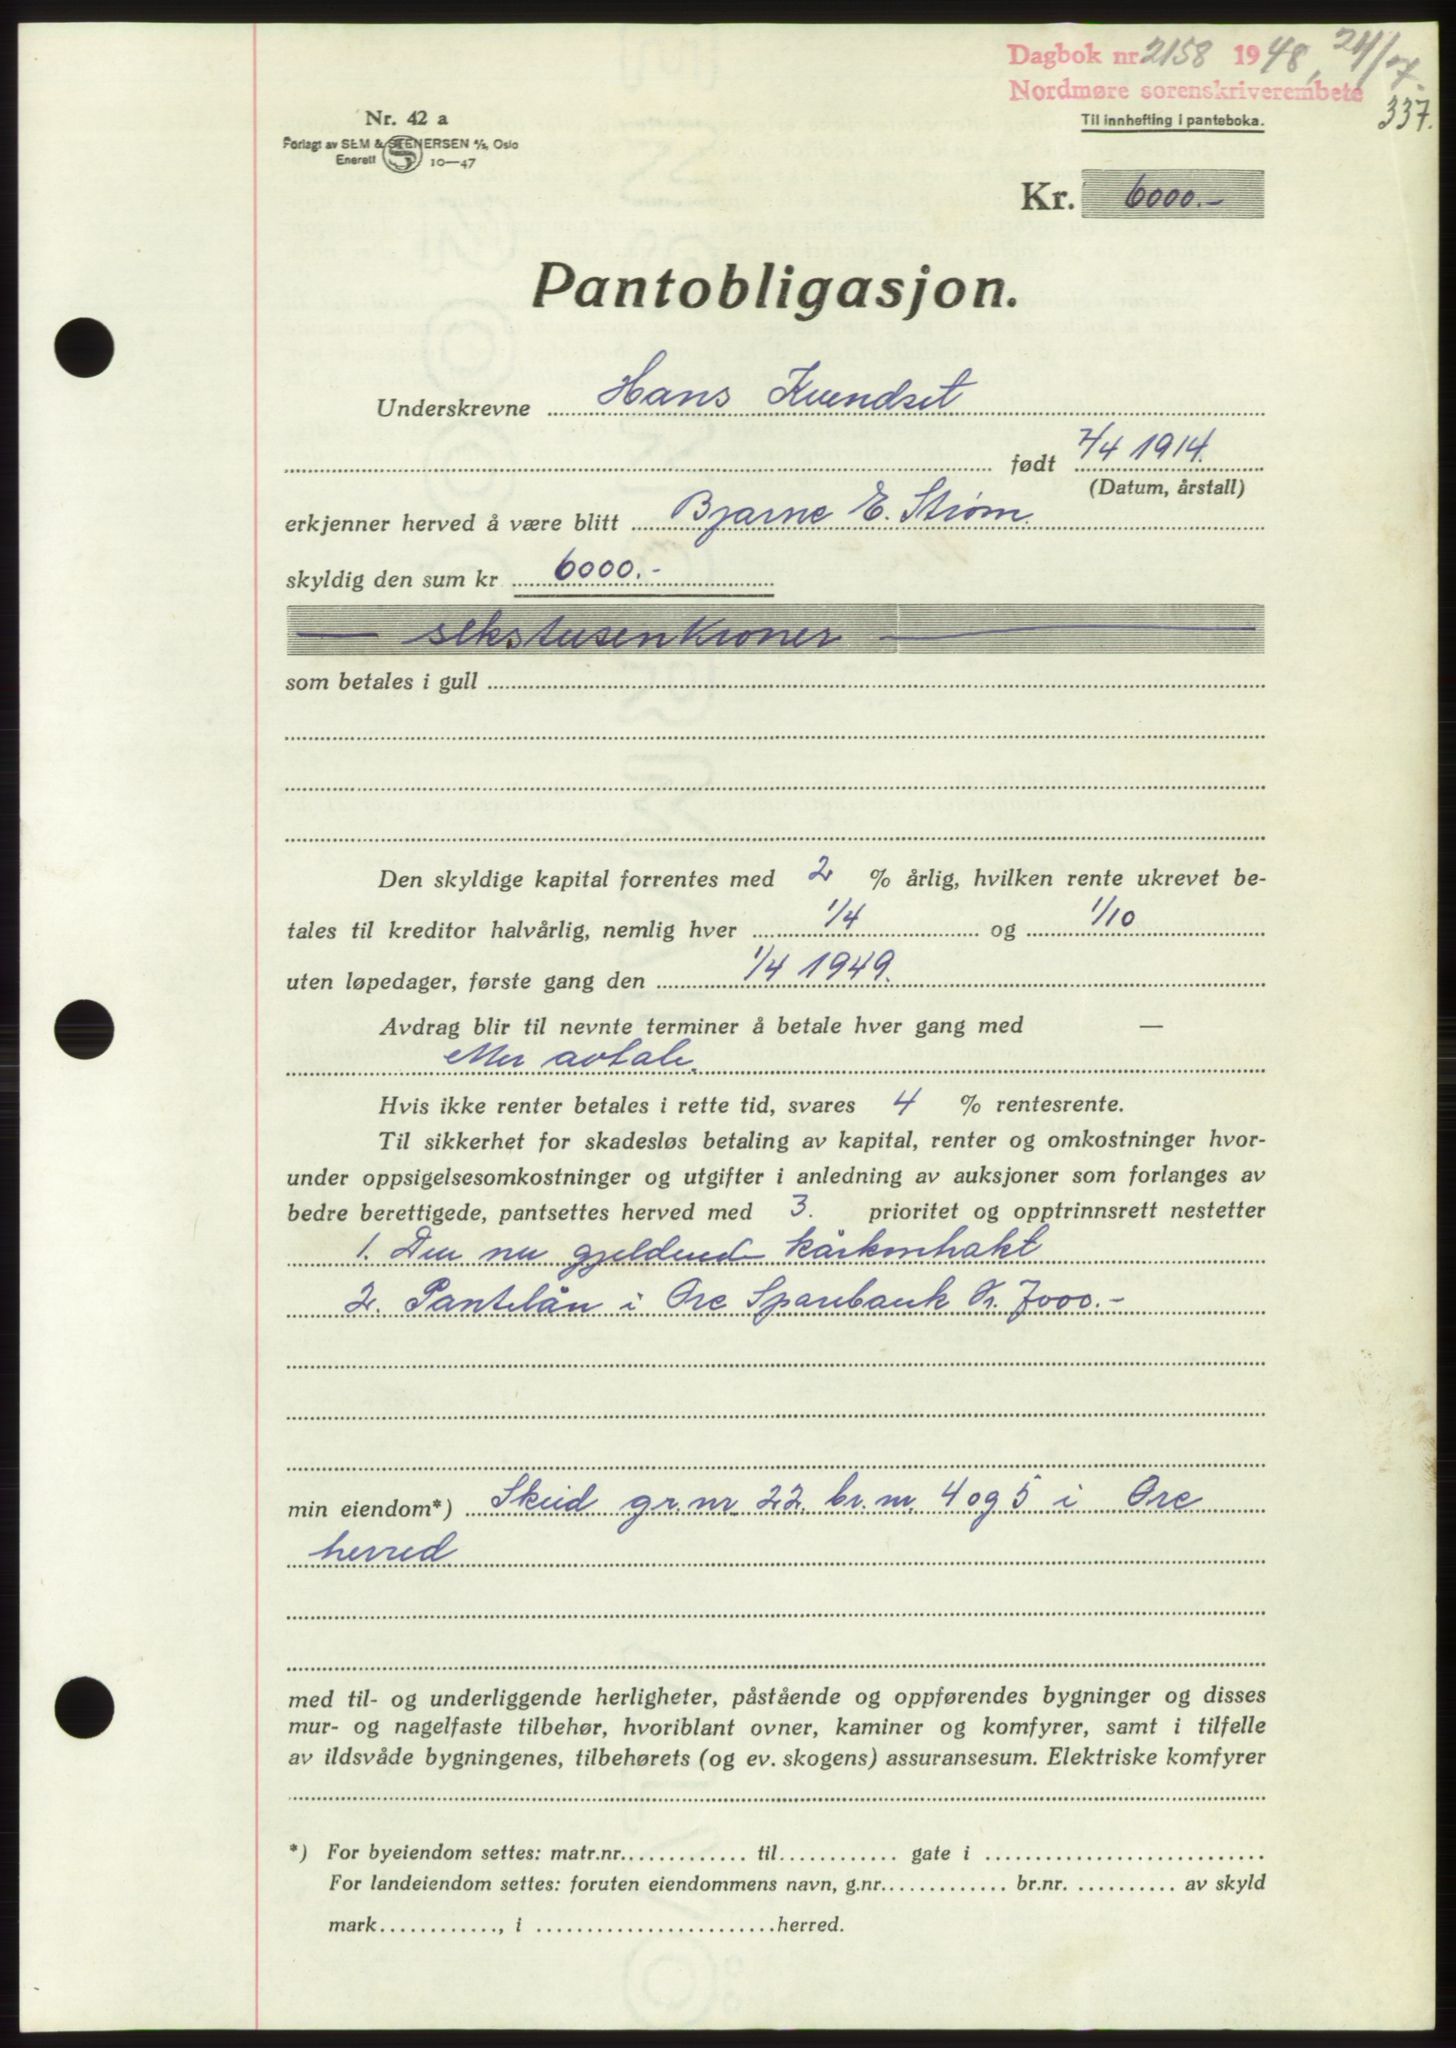 Dagbok nr 2158 1948, 24/7.
Nordmøre sorenskriverembete
337.
Til innhefting i panteboka.
Nr. 42 a
Forlagt av SEM & STENERSEN A/S, Oslo
Enerett 10—47
Kr. 6000.-
Pantobligasjon.
Underskrevne Hans Kvendset
født 7/4 1914.
(Datum, årstall)
erkjenner herved å være blitt Bjarne E. Strøm.
skyldig den sum kr 6000.-
— sekstusenkroner —
som betales i gull
Den skyldige kapital forrentes med 2 % årlig, hvilken rente ukrevet be-
tales til kreditor halvårlig, nemlig hver 1/4 og 1/10
uten løpedager, første gang den 1/4 1949.
Avdrag blir til nevnte terminer å betale hver gang med —
etter avtale.
Hvis ikke renter betales i rette tid, svares 4 % rentesrente.
Til sikkerhet for skadesløs betaling av kapital, renter og omkostninger hvor-
under oppsigelsesomkostninger og utgifter i anledning av auksjoner som forlanges av
bedre berettigede, pantsettes herved med 3. prioritet og opptrinnsrett nestetter
1. Den nu gjeldende kårkontrakt
2. Pantelån i Øre Sparebank Kr. 7000.-
min eiendom*) Skeid gr.nr. 22 br. nr. 4 og 5 i Øre
herred
med til- og underliggende herligheter, påstående og oppførendes bygninger og disses
mur- og nagelfaste tilbehør, hvoriblant ovner, kaminer og komfyrer, samt i tilfelle
av ildsvåde bygningenes, tilbehørets (og ev. skogens) assuransesum. Elektriske komfyrer
*) For byeiendom settes: matr.nr. til gate i
For landeiendom settes: foruten eiendommens navn, g.nr. br.nr. av skyld
mark , i herred.